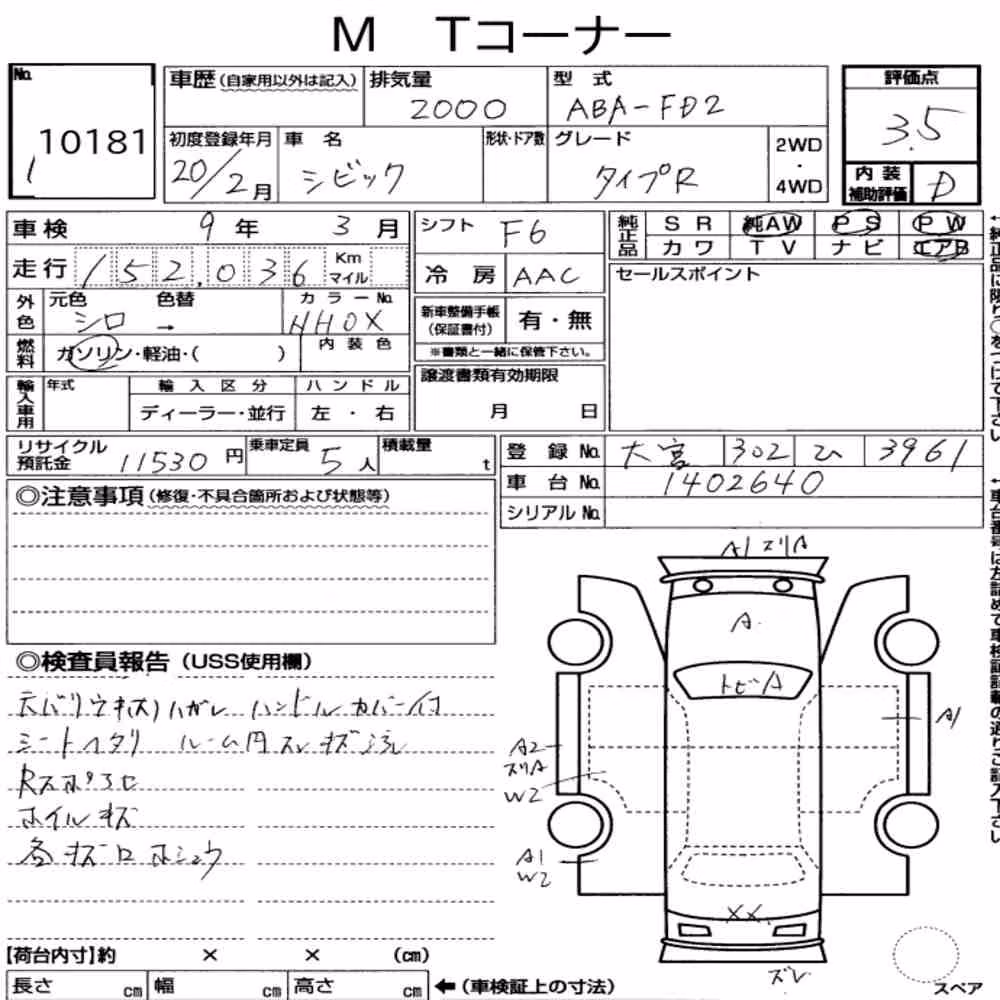 M Tコーナー
No. 10181
1
車歴(自家用以外は記入) 排気量 2000 型式 ABA-FD2
評価点 3.5
初度登録年月 20/2月 車名 シビック 形状・ドア数 グレード タイプR 2WD・4WD
内装補助評価 D
車検 9年 3月
シフト F6
純正品 SR 純AW PS PW
カワ TV ナビ エアB
走行 152,036 Km マイル
冷房 AAC
セールスポイント
外色 元色 シロ → 色替 カラーNo. NH0X
新車整備手帳(保証書付) 有・無
※書類と一緒に保管下さい。
燃料 ガソリン・軽油・( ) 内装色
譲渡書類有効期限 月 日
輸入車用 年式 輸入区分 ディーラー・並行 ハンドル 左・右
リサイクル預託金 11530円 乗車定員 5人 積載量 t
登録No. 大宮 302 ひ 3961
車台No. 1402640
シリアルNo.
◎注意事項(修復・不具合箇所および状態等)
◎検査員報告(USS使用欄)
天バリウキ(ス)ハガレ ハンドルカバー付
シートヘタリ ルーム内スレキズ汚レ
Rスポ3セ
ホイルキズ
各キズロホシュウ
A1 スリA
A
トビA
A1
A2
スリA
W2
A1
W2
XX.
ズレ
スペア
【荷台内寸】約 × × (cm)
長さ cm 幅 cm 高さ cm ←(車検証上の寸法)
←純正品に限り○をつけて下さい
←車台番号は左詰めで車検証記載の通りご記入下さい